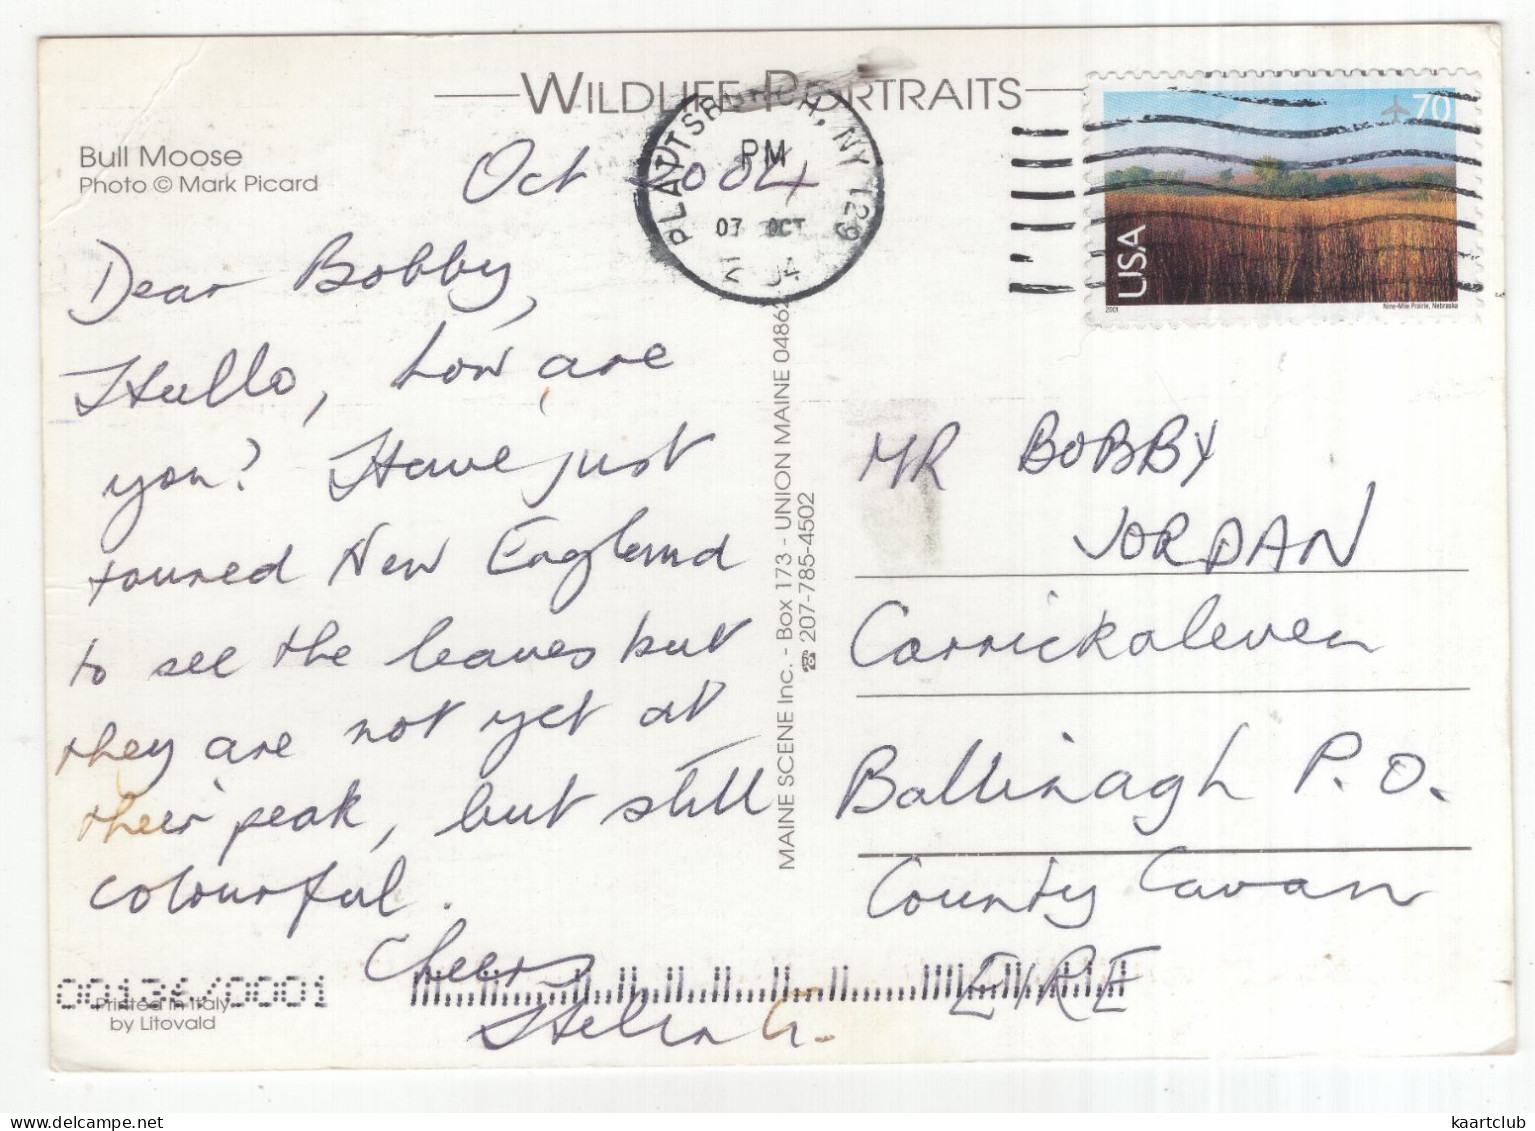 WILDLIFE PORTRAITS
Bull Moose
Photo © Mark Picard
Oct 2004
PLATTSBURGH, NY 129
PM
07 OCT
70
USA
2001
Nine-Mile Prairie, Nebraska
Dear Bobby,
Hello, how are
you? Have just
toured New England
to see the leaves but
they are not yet at
their peak, but still
colourful.
Cheers
Helen G.
MAINE SCENE Inc. - Box 173 - UNION MAINE 04862
☎ 207-785-4502
MR BOBBY
JORDAN
Carrickaleven
Ballinagh P.O.
County Cavan
EIRE
Printed in Italy
by Litovald
kaartclub